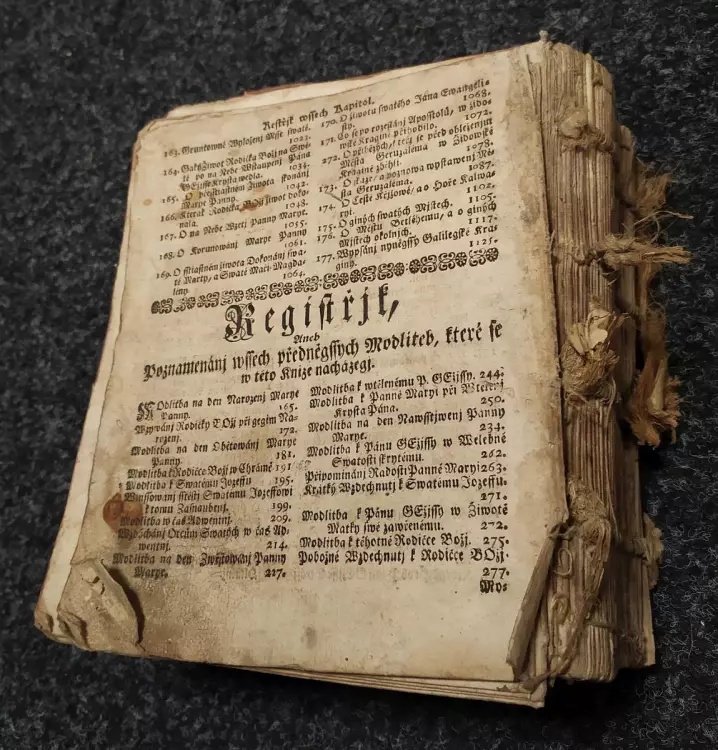 Restřjk wssech Kapitol.
163. Gruntowné Wyloženj Mše swaté.
1022.
164. Gaký Život Rodička Božj na Swě-
tě po na Nebe Wstaupenj Pána
GEžjsse Krysta wedla. 1034.
165. O přesstiastném Života skonánj
Marye Panny. 1042.
166. Kterak Rodička Božj život doko-
nala. 1048.
167. O na Nebe Wzetj Panny Marye.
1055.
168. O Korunowánj Marye Panny
1061.
169. O sstiastném života Dokonánj swa-
té Marty, a Swaté Máři Magda-
leny. 1064.
170. O životu swatého Jána Ewangeli-
sty. 1068.
171. Co se po rozeslánj Aposstolů, w židow-
ské Kragině přihodilo. 1072.
272. O přjbězých, genž se před obleženjm
Města Geruzaléma w židowské
Kragině zběhli. 1078.
173. O zkáze, a poznowu wystawenj Mě-
sta Geruzaléma. 1087.
174. O Cestě Křjžowé, a o Hoře Kalwa-
ryi. 1102.
175. O giných swatých Mjstech. 1105.
176. O Městu Betlehemu, a o giných
Mjstech okolnjch. 1117.
177. Wypsánj nyněgssý Galilegské Kra-
giny. 1125.
Registřjk,
Aneb
Poznamenánj wssech předněgssých Modliteb, které se
w této Knize nacházegj.
MOdlitba na den Narozenj Marye
Panny. 165.
Wzywánj Rodičky BOžj při gegjm Na-
rozenj. 172.
Modlitba na den Obětowánj Marye
Panny. 181.
Modlitba k Rodičce Božj w Chrámě 191
Modlitba k Swatému Jozeffu 195.
Winssowánj sstěstj Swatému Jozeffowi
k tomu Zasnaubenj. 199.
Modlitba w čas Adwentnj. 209.
Wzdychánj Otcům Swatých w čas Ad-
wentnj. 214.
Modlitba na den Zwěstowánj Panny
Marye. 217.
Modlitba k wtělenému P. GEžjssy. 244.
Modlitba k Panně Maryi při Wtělenj
Krysta Pána. 250.
Modlitba na den Nawsstjwenj Panny
Marye. 234.
Modlitba k Pánu GEžjssy w Welebné
Swátosti skrytému. 262.
Připomjnánj Radosti Panně Maryi 263.
Krátký Wzdechnutj k Swatému Jozeffu.
271.
Modlitba k Pánu GEžjssy w Životě
Matky swé zawřenému. 272.
Modlitba k těhotné Rodičce Božj. 275.
Pobožné Wzdechnutj k Rodičce BOžj.
277.
My-